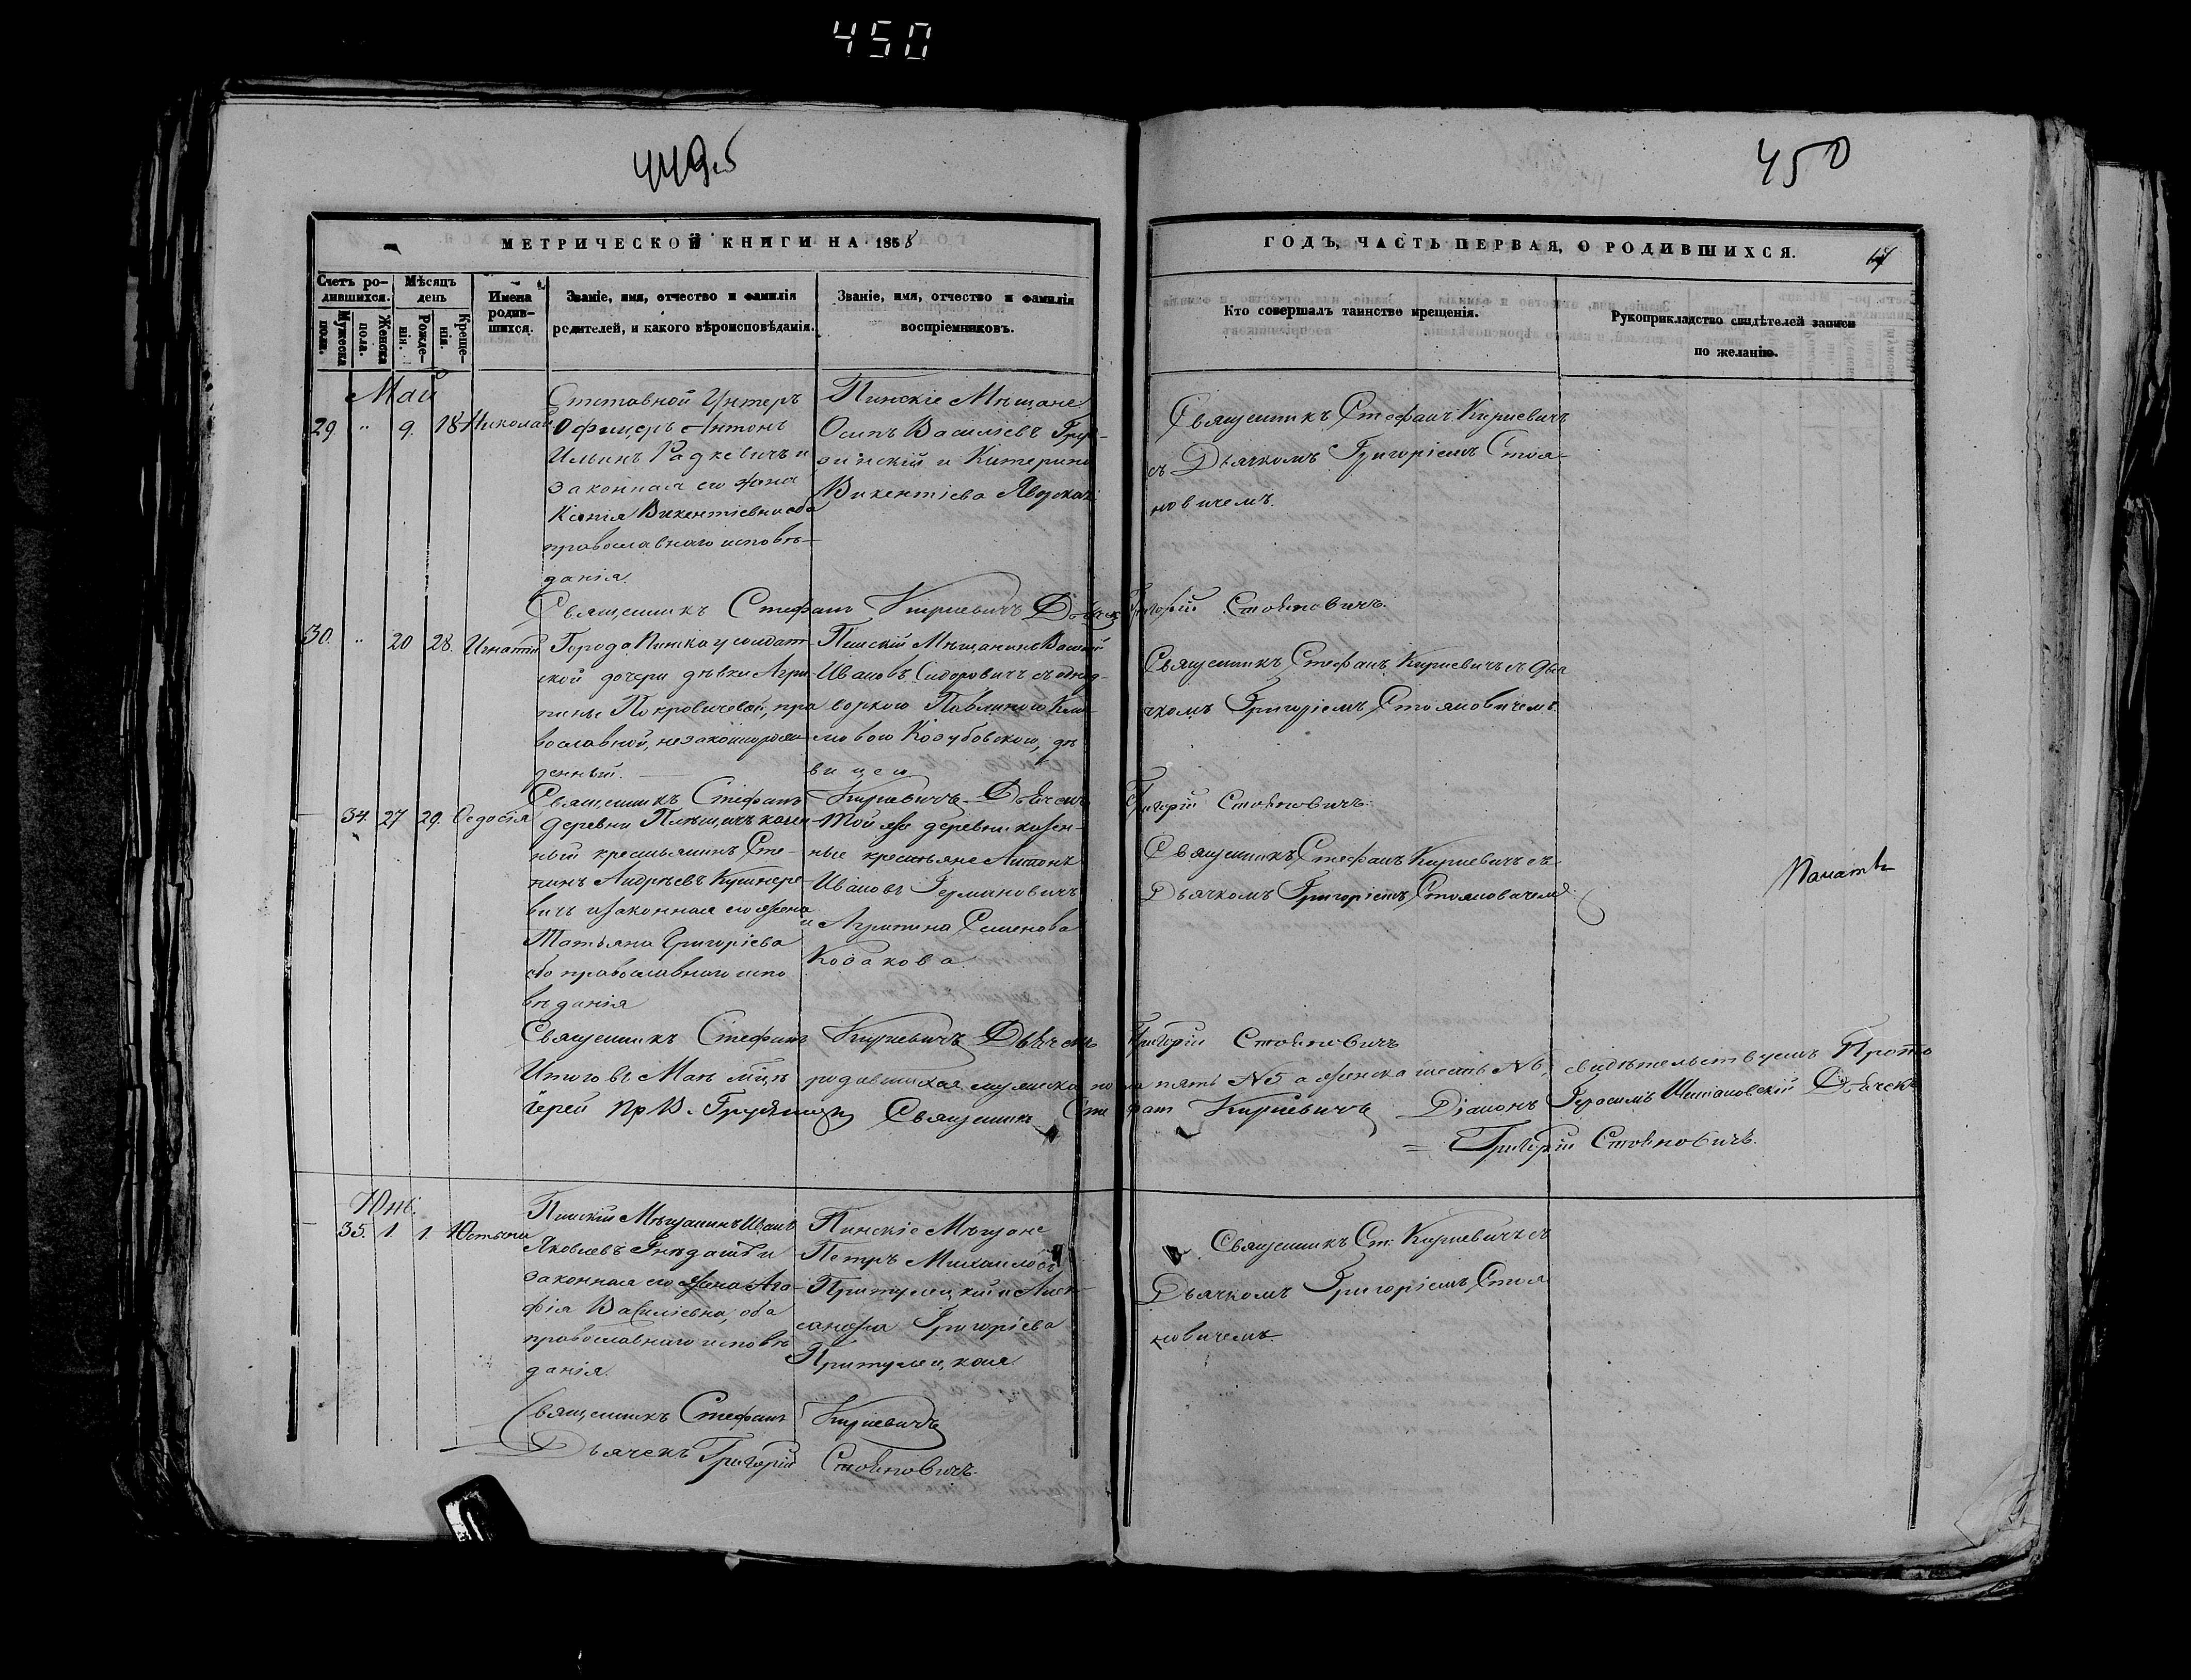 450
449об
450
МЕТРИЧЕСКОЙ КНИГИ НА 1858
ГОДЪ, ЧАСТЬ ПЕРВАЯ, О РОДИВШИХСЯ.
Счетъ ро-
дившихся.
Мужеска
пола.
Женска
пола.
Мѣсяцъ
день
Рожде-
нія.
Креще-
нія.
Имена
родив-
шихся.
Званіе, имя, отчество и фамилія
родителей, и какого вѣроисповѣданія.
Званіе, имя, отчество и фамилія
воспріемниковъ.
Кто совершалъ таинство крещенія.
Рукоприкладство свидѣтелей записи
по желанію.
Май
29 " 9. 18 Николай
Унтеръ
Офицеръ Антонъ
Ильинъ Радкевичъ и
законная его жена
Ксенія Викентіевна оба
православнаго исповѣ-
данія.
Пинскіе Мѣщане
Осипъ Василіевъ
и Катерина
Викентіева
Священникъ Стефанъ Кириевичъ
съ Дьячкомъ Григоріемъ Стоя-
новичемъ.
Священникъ Стефанъ Кириевичъ Дьячекъ Григорій Стояновичъ.
30. " 20 28. Игнатій
Города Пинска у солдат-
ской дочери дѣвки Агри-
пины Покровичевой, пра-
вославной, незаконнорож-
денный.
Пинскій Мѣщанинъ Василій
Ивановъ Сидоровичъ съ
Козубовскою, дѣ-
вицею.
Священникъ Стефанъ Кириевичъ съ Дья-
чкомъ Григоріемъ Стояновичемъ.
Священникъ Стефанъ Кириевичъ Дьячекъ Григорій Стояновичъ.
34. 27 29. Ѳедосія
деревни казен-
ный крестьянинъ Сте-
Андреевъ Кушнере-
вичъ и законная его жена
Татьяна Григоріева
оба православнаго испо-
вѣданія
Той же деревни казен-
ные крестьяне Антонъ
Ивановъ Германовичъ
и Агрипина Семенова
Козакова.
Священникъ Стефанъ Кириевичъ съ
Дьячкомъ Григоріемъ Стояновичемъ.
Священникъ Стефанъ Кириевичъ Дьячекъ Григорій Стояновичъ
Итого въ Маѣ родившихся мужеска пола пять №5 а женска шесть №6, свидѣтельствуемъ Прото-
іерей Священникъ Стефанъ Кириевичъ Діаконъ Герасимъ Дьячекъ
= Григорій Стояновичъ.
35. 1. 1
Пинскій Мѣщанинъ Иванъ
Яковлевъ и
законная его жена Ага-
фія Василіевна, оба
православнаго исповѣ-
данія.
Пинскіе Мѣщане
Петръ Михаиловъ
и Алек-
сандра Григоріева
Священникъ Ст. Кириевичъ съ
Дьячкомъ Григоріемъ Стоя-
новичемъ.
Священникъ Стефанъ Кириевичъ
Дьячекъ Григорій Стояновичъ.